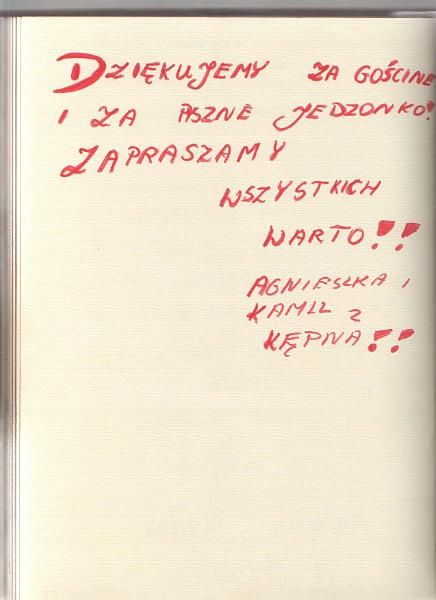 DZIĘKUJEMY ZA GOŚCINE
I ZA PYSZNE JEDZONKO!
ZAPRASZAMY
WSZYSTKICH
WARTO!!
AGNIESZKA I
KAMIL Z
KĘPNA!!